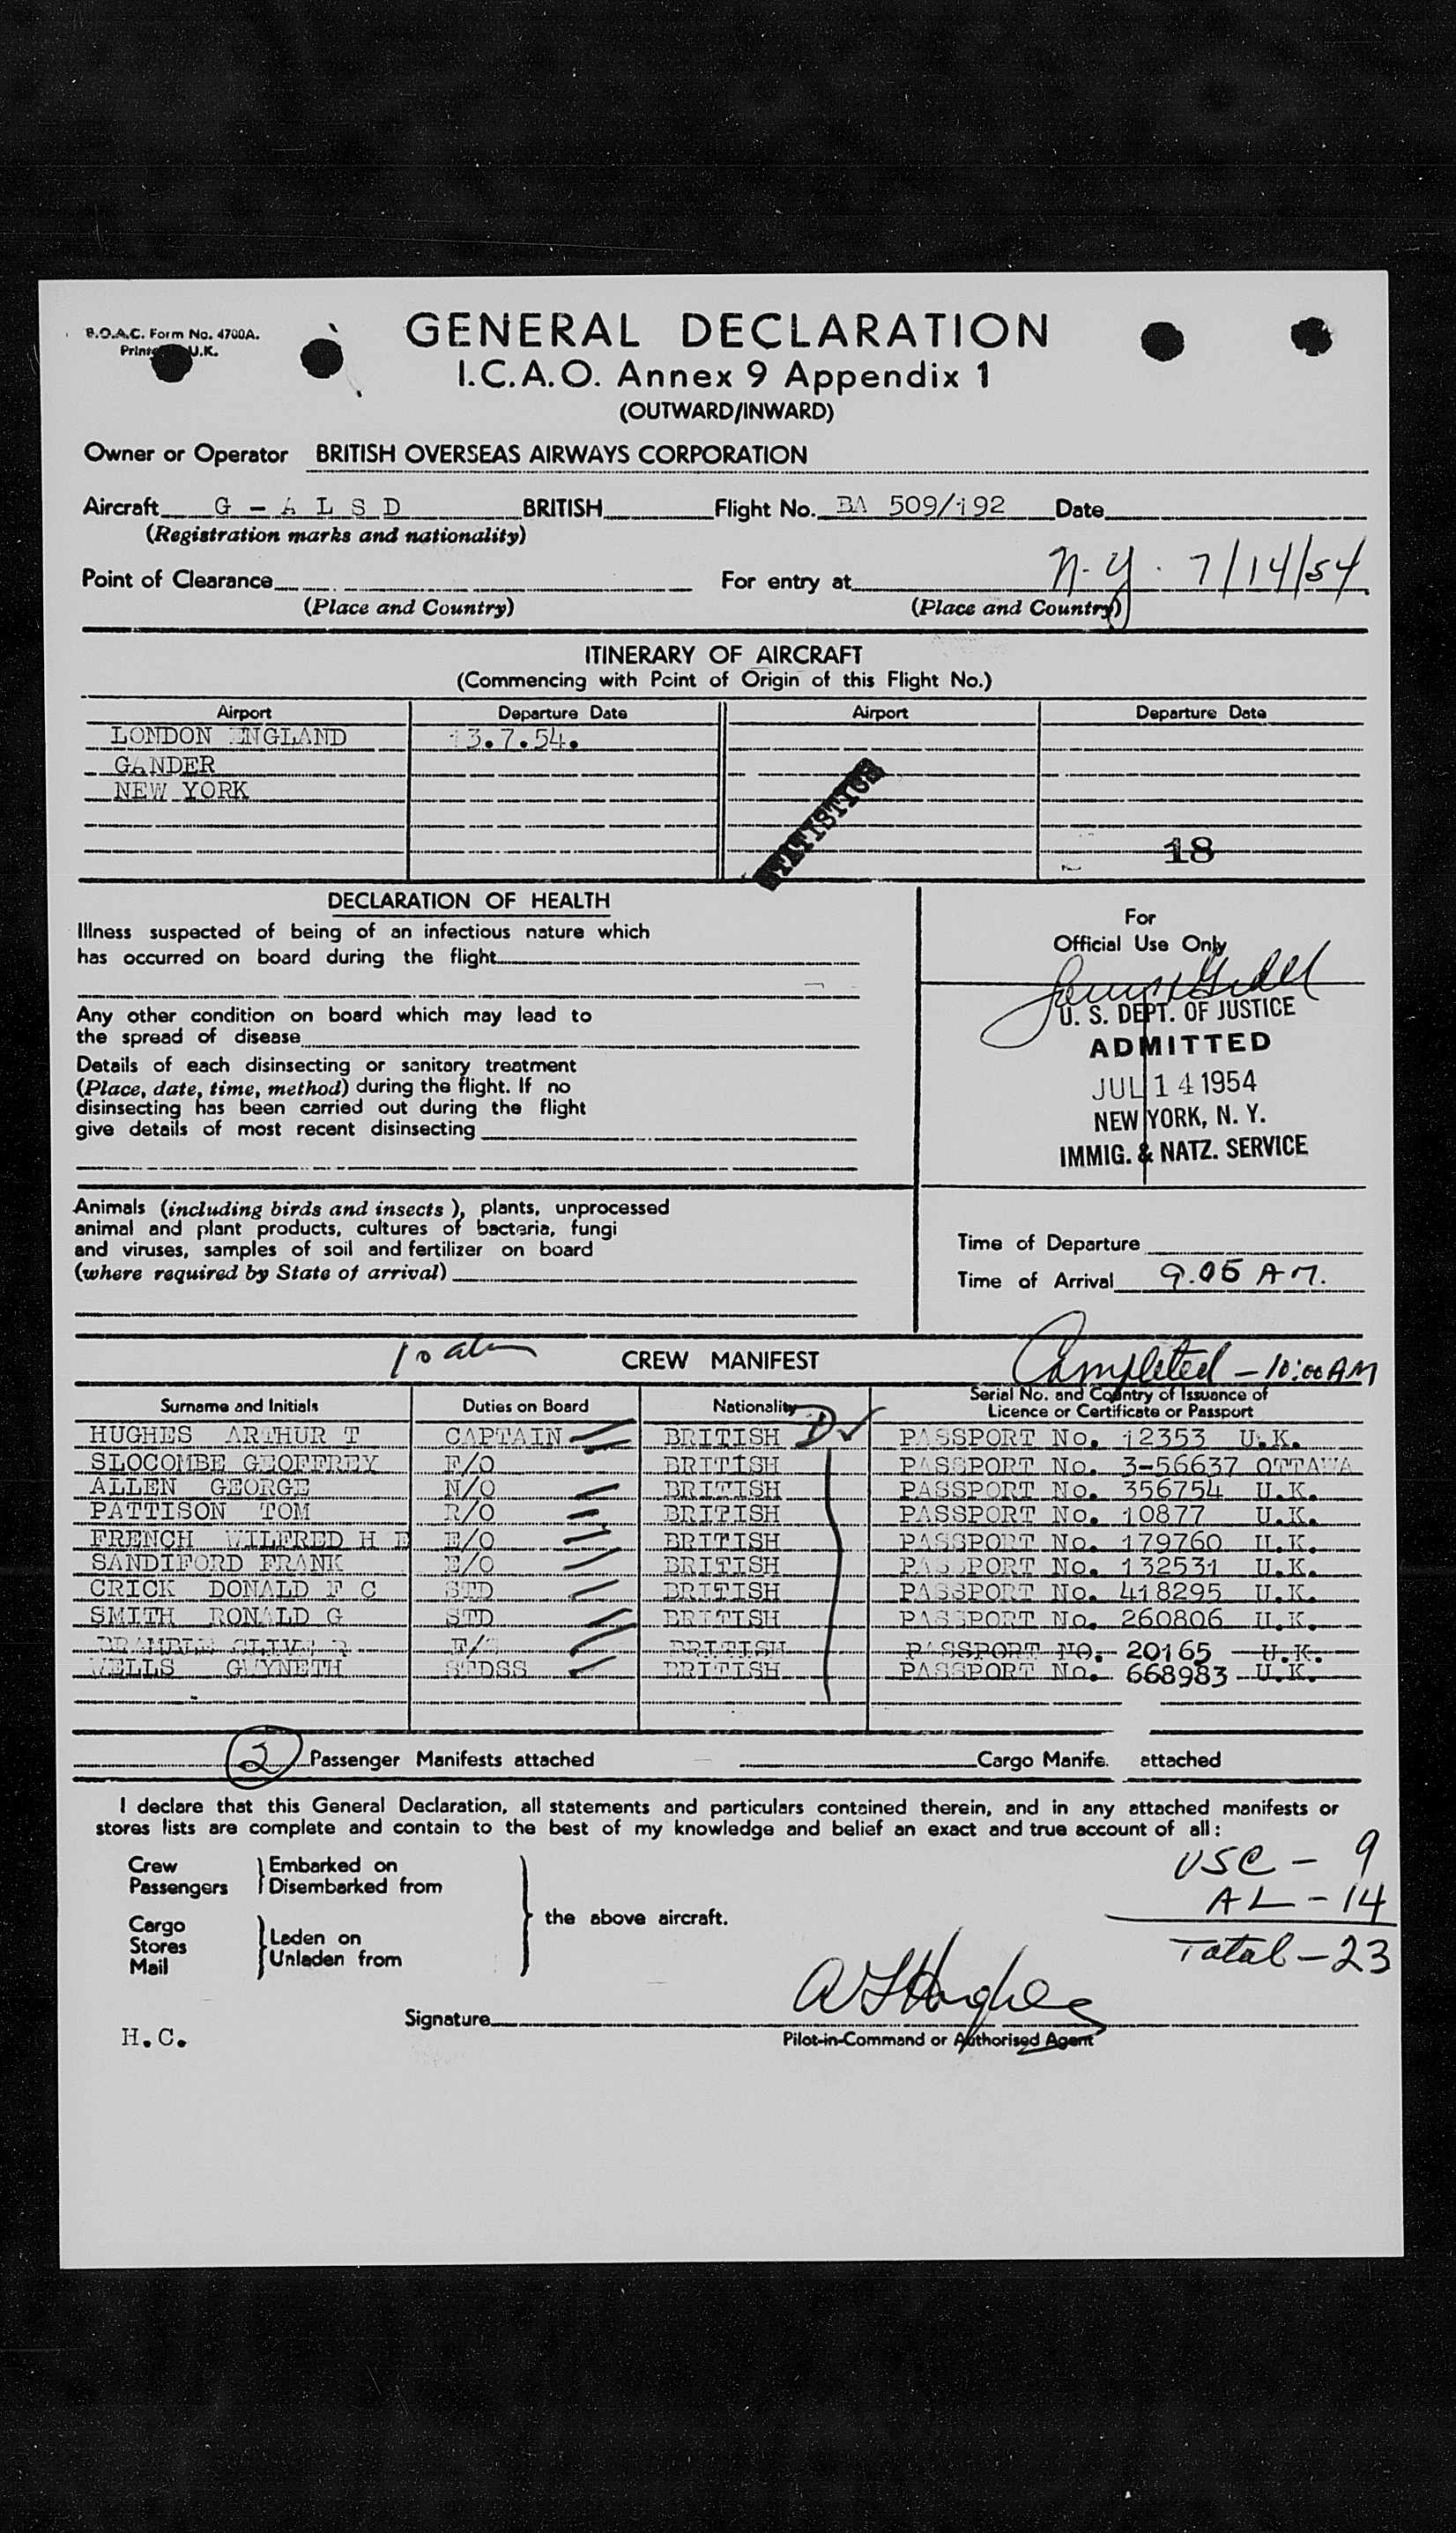 B.O.A.C. Form No. 4700A.
U.K.
GENERAL DECLARATION
I.C.A.O. Annex 9 Appendix 1
(OUTWARD/INWARD)
Owner or Operator BRITISH OVERSEAS AIRWAYS CORPORATION
Aircraft G - A L S D BRITISH Flight No. BA 509/192 Date
(Registration marks and nationality)
N.Y. 7/14/54
Point of Clearance For entry at
(Place and Country) (Place and Country)
ITINERARY OF AIRCRAFT
(Commencing with Point of Origin of this Flight No.)
Airport Departure Date Airport Departure Date
LONDON ENGLAND 13.7.54.
GANDER
NEW YORK
STATISTICS
18
DECLARATION OF HEALTH
Illness suspected of being of an infectious nature which
has occurred on board during the flight
Any other condition on board which may lead to
the spread of disease
Details of each disinsecting or sanitary treatment
(Place, date, time, method) during the flight. If no
disinsecting has been carried out during the flight
give details of most recent disinsecting
For
Official Use Only
U. S. DEPT. OF JUSTICE
ADMITTED
JUL 14 1954
NEW YORK, N. Y.
IMMIG. & NATZ. SERVICE
Animals (including birds and insects), plants, unprocessed
animal and plant products, cultures of bacteria, fungi
and viruses, samples of soil and fertilizer on board
(where required by State of arrival)
Time of Departure
Time of Arrival 9.05 AM.
CREW MANIFEST Completed - 10:00 AM
Surname and Initials Duties on Board Nationality Serial No. and Country of Issuance of
Licence or Certificate or Passport
HUGHES ARTHUR T CAPTAIN BRITISH PASSPORT No. 12353 U.K.
SLOCOMBE GEOFFREY F/O BRITISH PASSPORT No. 3-56637 OTTAWA
ALLEN GEORGE N/O BRITISH PASSPORT No. 356754 U.K.
PATTISON TOM R/O BRITISH PASSPORT No. 10877 U.K.
FRENCH WILFRED H E E/O BRITISH PASSPORT No. 179760 U.K.
SANDIFORD FRANK E/O BRITISH PASSPORT No. 132531 U.K.
CRICK DONALD F C STD BRITISH PASSPORT No. 418295 U.K.
SMITH RONALD G STD BRITISH PASSPORT No. 260806 U.K.
BRAMBLE CLIVE R BRITISH PASSPORT NO. 20165 U.K.
WELLS GWYNETH STDSS BRITISH PASSPORT No. 668983 U.K.
2 Passenger Manifests attached Cargo Manife. attached
I declare that this General Declaration, all statements and particulars contained therein, and in any attached manifests or
stores lists are complete and contain to the best of my knowledge and belief an exact and true account of all:
Crew Embarked on
Passengers Disembarked from
Cargo
Stores Leden on
Mail Unladen from
the above aircraft.
USC - 9
AL - 14
Total - 23
ATHughes
Signature
H.C.
Pilot-in-Command or Authorised Agent